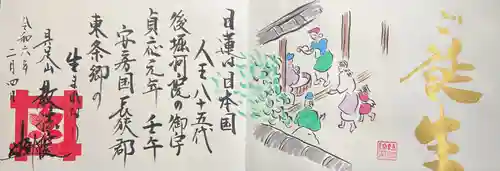 ご誕生
日蓮は日本国
人王八十五代
後堀河院の御宇
貞応元年 壬午
安房国長狭郡
東条郷の
生まれなり
具足山
令和六年
二月四日